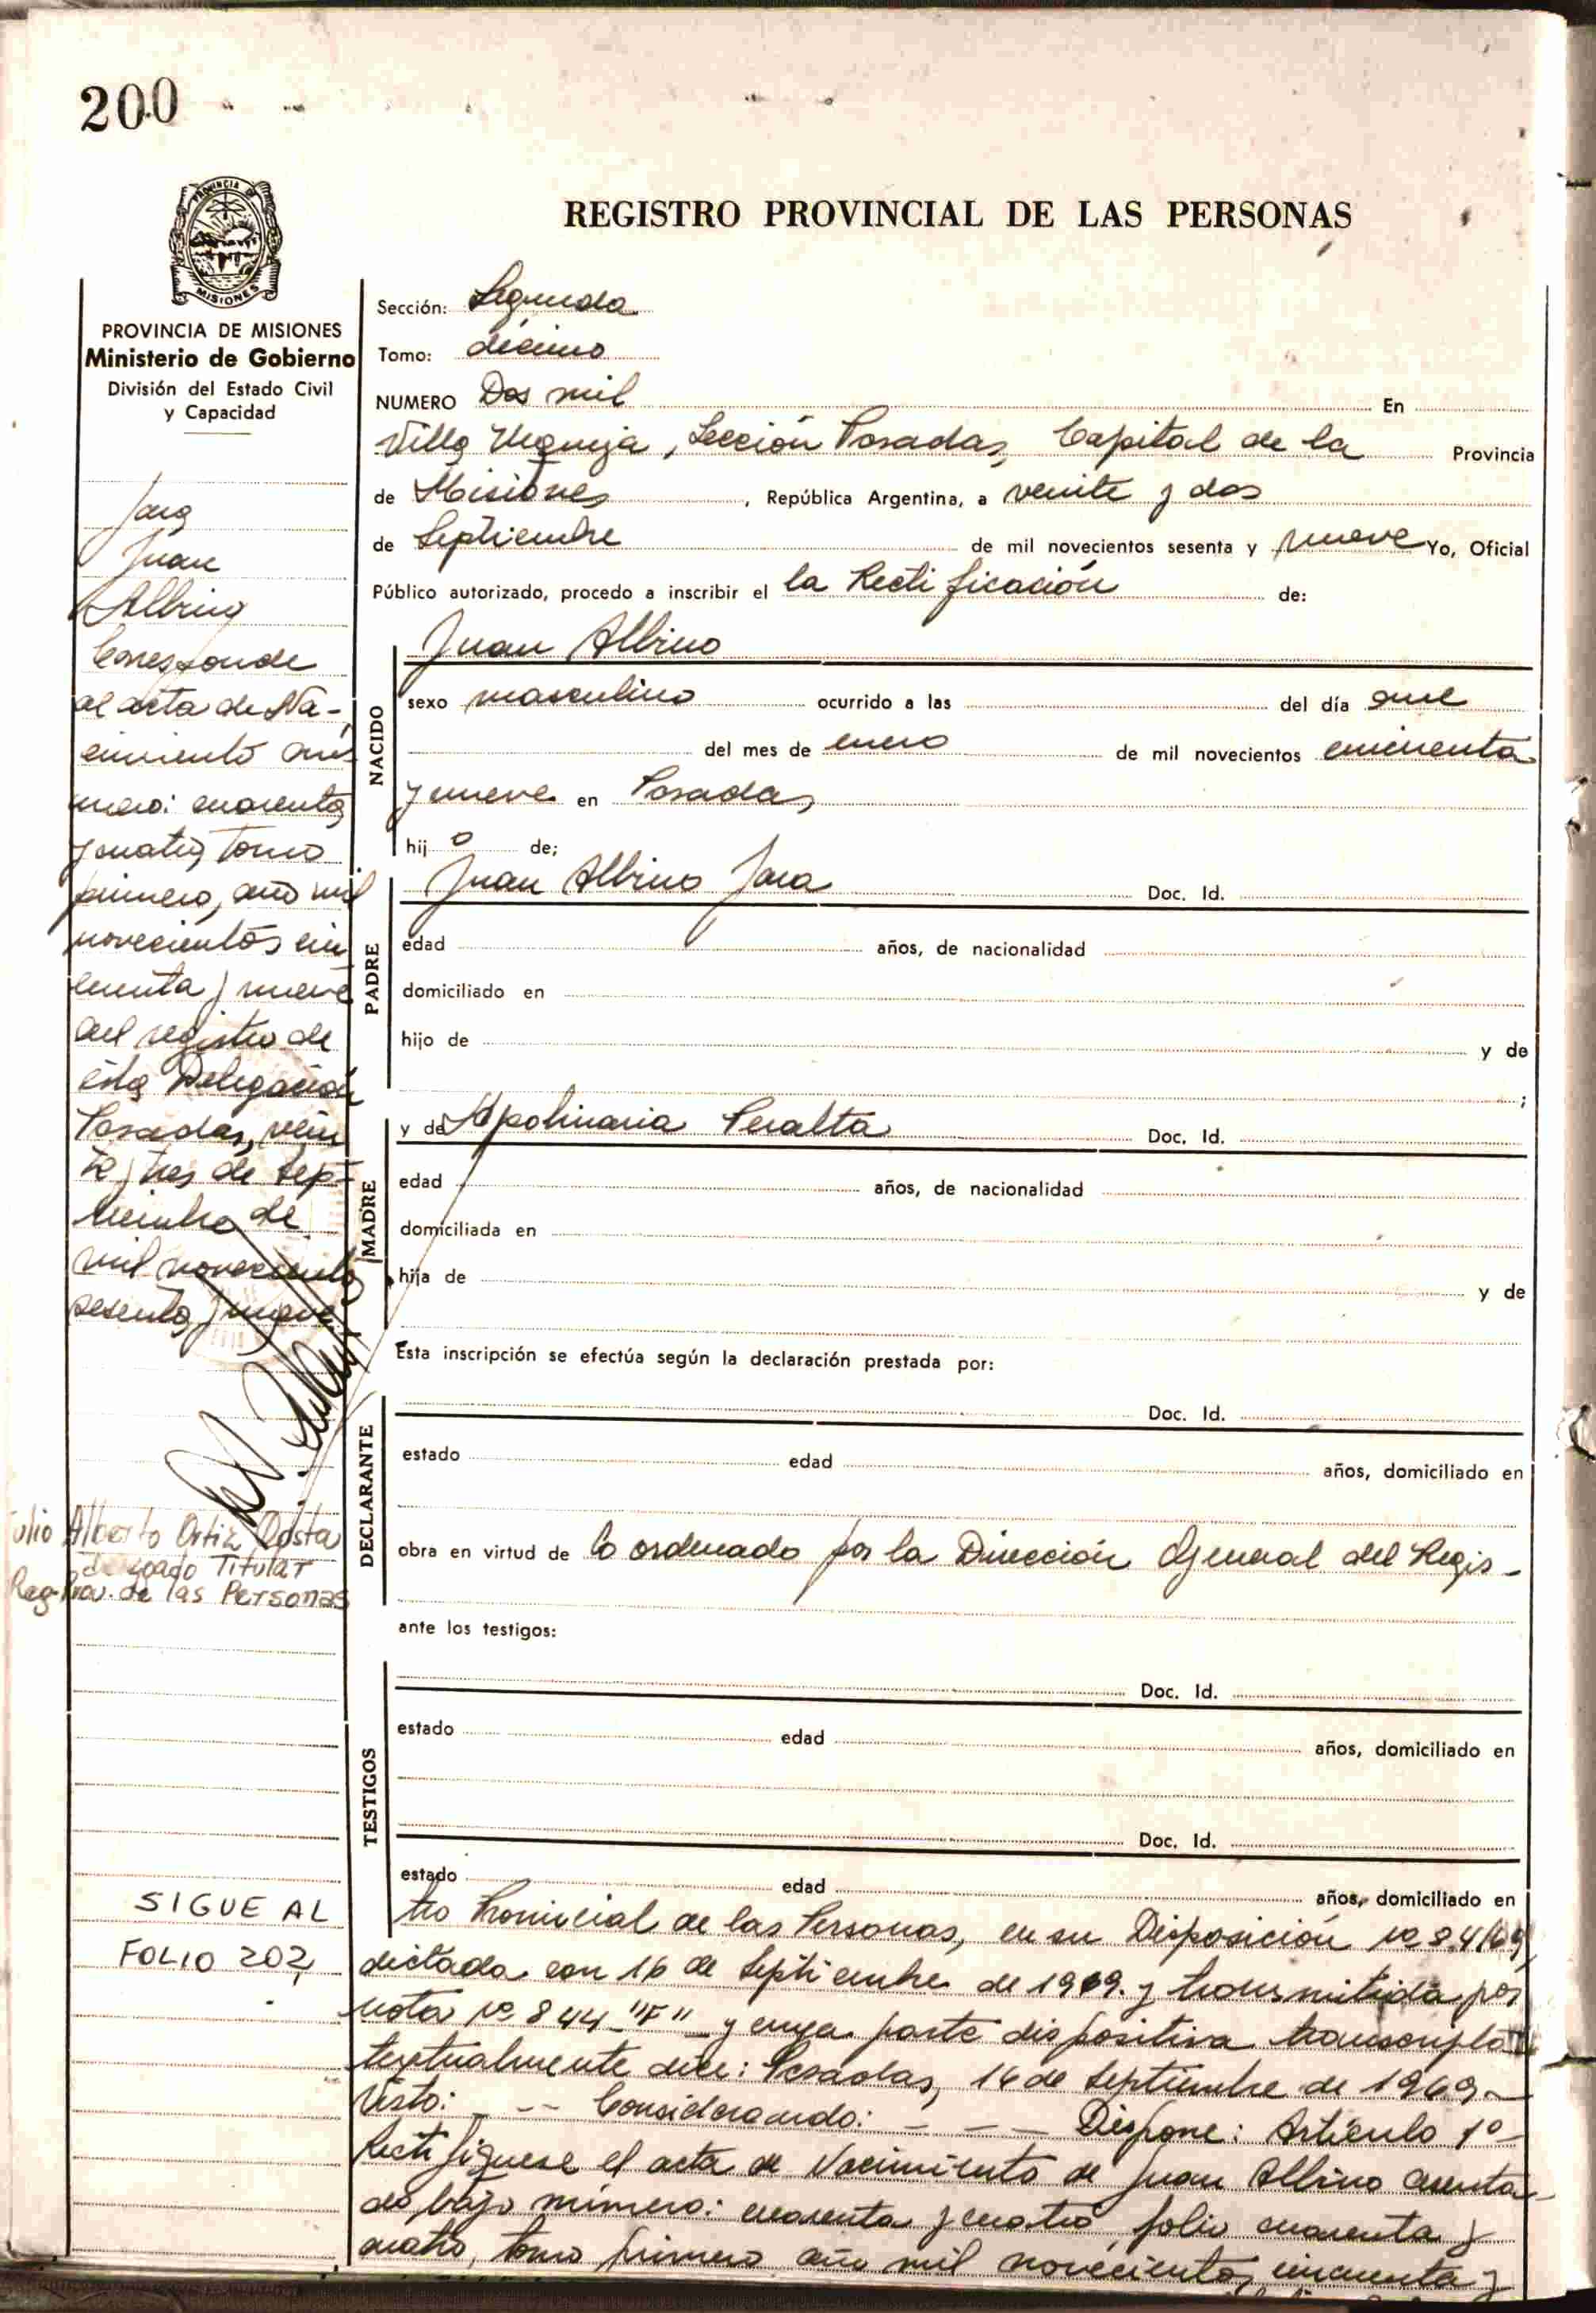 200
PROVINCIA DE
MISIONES
REGISTRO PROVINCIAL DE LAS PERSONAS
PROVINCIA DE MISIONES
Ministerio de Gobierno
División del Estado Civil
y Capacidad
Jara
Juan
Albino
Corresponde
al acta de Na-
cimiento nú
mero: cuarenta
y cuatro, tomo
primero, año mil
novecientos cin
cuenta y nueve
del registro de
esta Delegación
Posadas, vein
te y tres de Sep-
tiembre de
mil novecientos
sesenta y nueve
Julio Alberto Ortiz Costa
Delegado Titular
Reg. Prov. de las Personas
SIGUE AL
FOLIO 202
Sección: Segunda
Tomo: décimo
NUMERO Dos mil En
Villa Urquiza, Sección Posadas, Capital de la Provincia
de Misiones, República Argentina, a veinte y dos
de Septiembre de mil novecientos sesenta y nueve Yo, Oficial
Público autorizado, procedo a inscribir el la Rectificación de:
NACIDO
Juan Albino
sexo masculino ocurrido a las del día que
del mes de enero de mil novecientos cincuenta
y nueve en Posadas
hij o de;
PADRE
Juan Albino Jara Doc. Id.
edad años, de nacionalidad
domiciliado en
hijo de y de
;
MADRE
y de Apolinaria Peralta Doc. Id.
edad años, de nacionalidad
domiciliada en
hija de y de
Esta inscripción se efectúa según la declaración prestada por:
DECLARANTE
Doc. Id.
estado edad años, domiciliado en
obra en virtud de lo ordenado por la Dirección General del Regis-
ante los testigos:
TESTIGOS
Doc. Id.
estado edad años, domiciliado en
Doc. Id.
estado edad años, domiciliado en
tro Provincial de las Personas, en su Disposición no
dictada con 16 de Septiembre de 1969. y transmitida por
nota no 844 "F" y cuya parte dispositiva transcripta
textualmente dice: Posadas, 16 de Septiembre de 1969-
Visto: - -- Considerando: - - - Dispone: Artículo 1º-
Rectifíquese el acta de Nacimiento de Juan Albino asenta-
do bajo número: cuarenta y cuatro folio cuarenta y
cuatro, tomo primero año mil novecientos cincuenta y